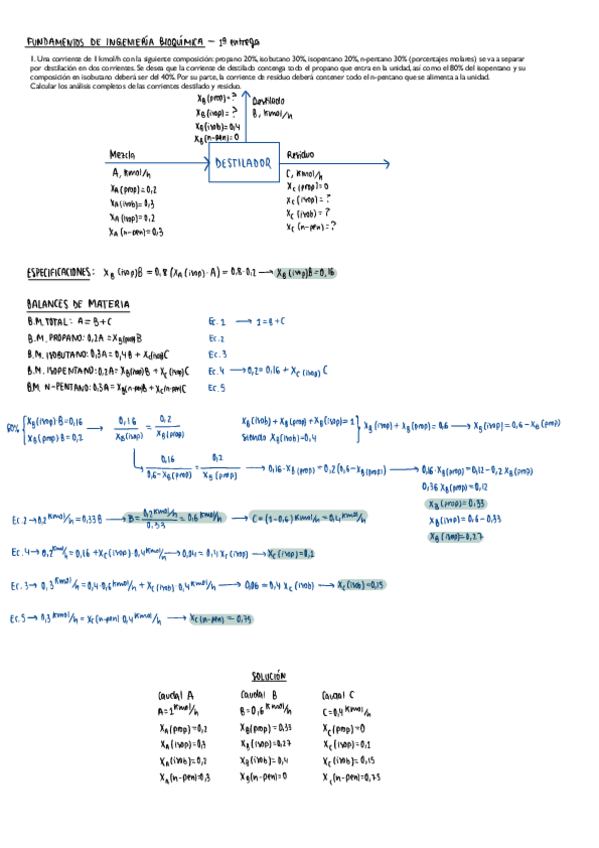 FUNDAMENTOS DE INGENIERÍA BIOQUÍMICA - 1ª entrega
1. Una corriente de 1kmol/h con la siguiente composición: propano 20%, isobutano 30%, isopentano 20%, n-pentano 30% (porcentajes molares) se va a separar
por destilación en dos corrientes. Se desea que la corriente de destilado contenga todo el propano que entra en la unidad, así como el 80% del isopentano y su
composición en isobutano deberá ser del 40%. Por su parte, la corriente de residuo deberá contener todo el n-pentano que se alimenta a la unidad.
Calcular los análisis completos de las corrientes destilado y residuo.
XB(prop)=?
XB(isop)=?
XB(isob)=0,4
XB(n-pen)=0
Destilado
B, kmol/h
Mezcla
A, kmol/h
XA(prop)=0,2
XA(isob)=0,3
XA(isop)=0,2
XA(n-pen)=0,3
DESTILADOR
Residuo
C, kmol/h
XC(prop)=0
XC(isop)=?
XC(isob)=?
XC(n-pen)=?
ESPECIFICACIONES: XB(isop)B = 0,8 (XA(isop)·A) = 0,8·0,2 → XB(isop)B=0,16
BALANCES DE MATERIA
B.M. TOTAL: A=B+C Ec.1 → 1=B+C
B.M. PROPANO: 0,2A=XB(prop)B Ec.2
B.M. ISOBUTANO: 0,3A=0,4B + XC(isob)C Ec.3
B.M. ISOPENTANO: 0,2A= XB(isop)B + XC(isop)C Ec.4 → 0,2=0,16 + XC(isop)C
B.M. N-PENTANO: 0,3A= XB(n-pen)B+XC(n-pen)C Ec.5
80% { XB(isop)·B=0,16 → 0,16/XB(isop) = 0,2/XB(prop) XB(isob) + XB(prop) + XB(isop)=1 } XB(isop) + XB(prop) = 0,6 → XB(isop) = 0,6 - XB(prop)
XB(prop)·B=0,2 Siendo XB(isob)=0,4
0,16/0,6-XB(prop) = 0,2/XB(prop) → 0,16·XB(prop) = 0,2(0,6-XB(prop)) → 0,16·XB(prop)=0,12-0,2 XB(prop)
0,36 XB(prop)=0,12
XB(prop)=0,33
XB(isop)=0,6-0,33
XB(isop)=0,27
Ec.2→0,2 kmol/h = 0,33B → B= 0,2 kmol/h / 0,33 = 0,6 kmol/h → C=(1-0,6) kmol/h = 0,4 kmol/h
Ec.4→0,2 kmol/h = 0,16 + XC(isop)·0,4 kmol/h → 0,04 = 0,4 XC(isop) → XC(isop)=0,1
Ec.3→ 0,3 kmol/h = 0,4·0,6 kmol/h + XC(isob)·0,4 kmol/h → 0,06 = 0,4 XC(isob) → XC(isob)=0,15
Ec.5→ 0,3 kmol/h = XC(n-pen) 0,4 kmol/h → XC(n-pen) = 0,75
SOLUCIÓN
Caudal A
A=1 kmol/h
XA(prop)=0,2
XA(isop)=0,3
XA(isob)=0,2
XA(n-pen)=0,3
Caudal B
B=0,6 kmol/h
XB(prop)=0,33
XB(isop)=0,27
XB(isob)=0,4
XB(n-pen)=0
Caudal C
C=0,4 kmol/h
XC(prop)=0
XC(isop)=0,1
XC(isob)=0,15
XC(n-pen)=0,75